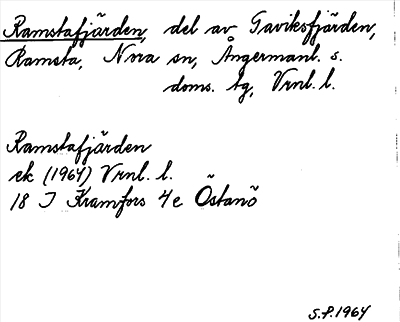 Ramstafjärden, del av Gaviksfjärden,
Ramsta, Nora sn, Ångermanl. s.
doms. tg, Vrnl. l.
Ramstafjärden
ek (1964) Vrnl. l.
18 I Kramfors 4e Östanö
S.P. 1964